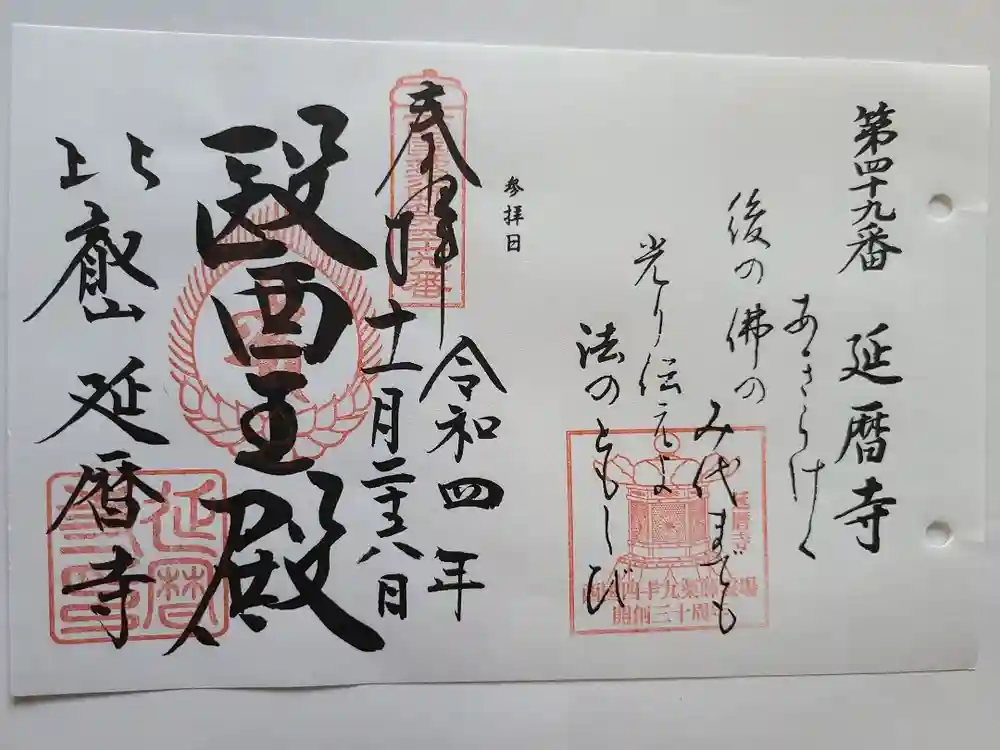 第四十九番 延暦寺
あきらけく
後の佛の
み代までも
光り伝えよ
法のともしび
延暦寺
西国四十九薬師霊場
開創三十周年
参拝日
奉拝
令和四年
十一月二十八日
醫王殿
比叡山 延暦寺
延暦